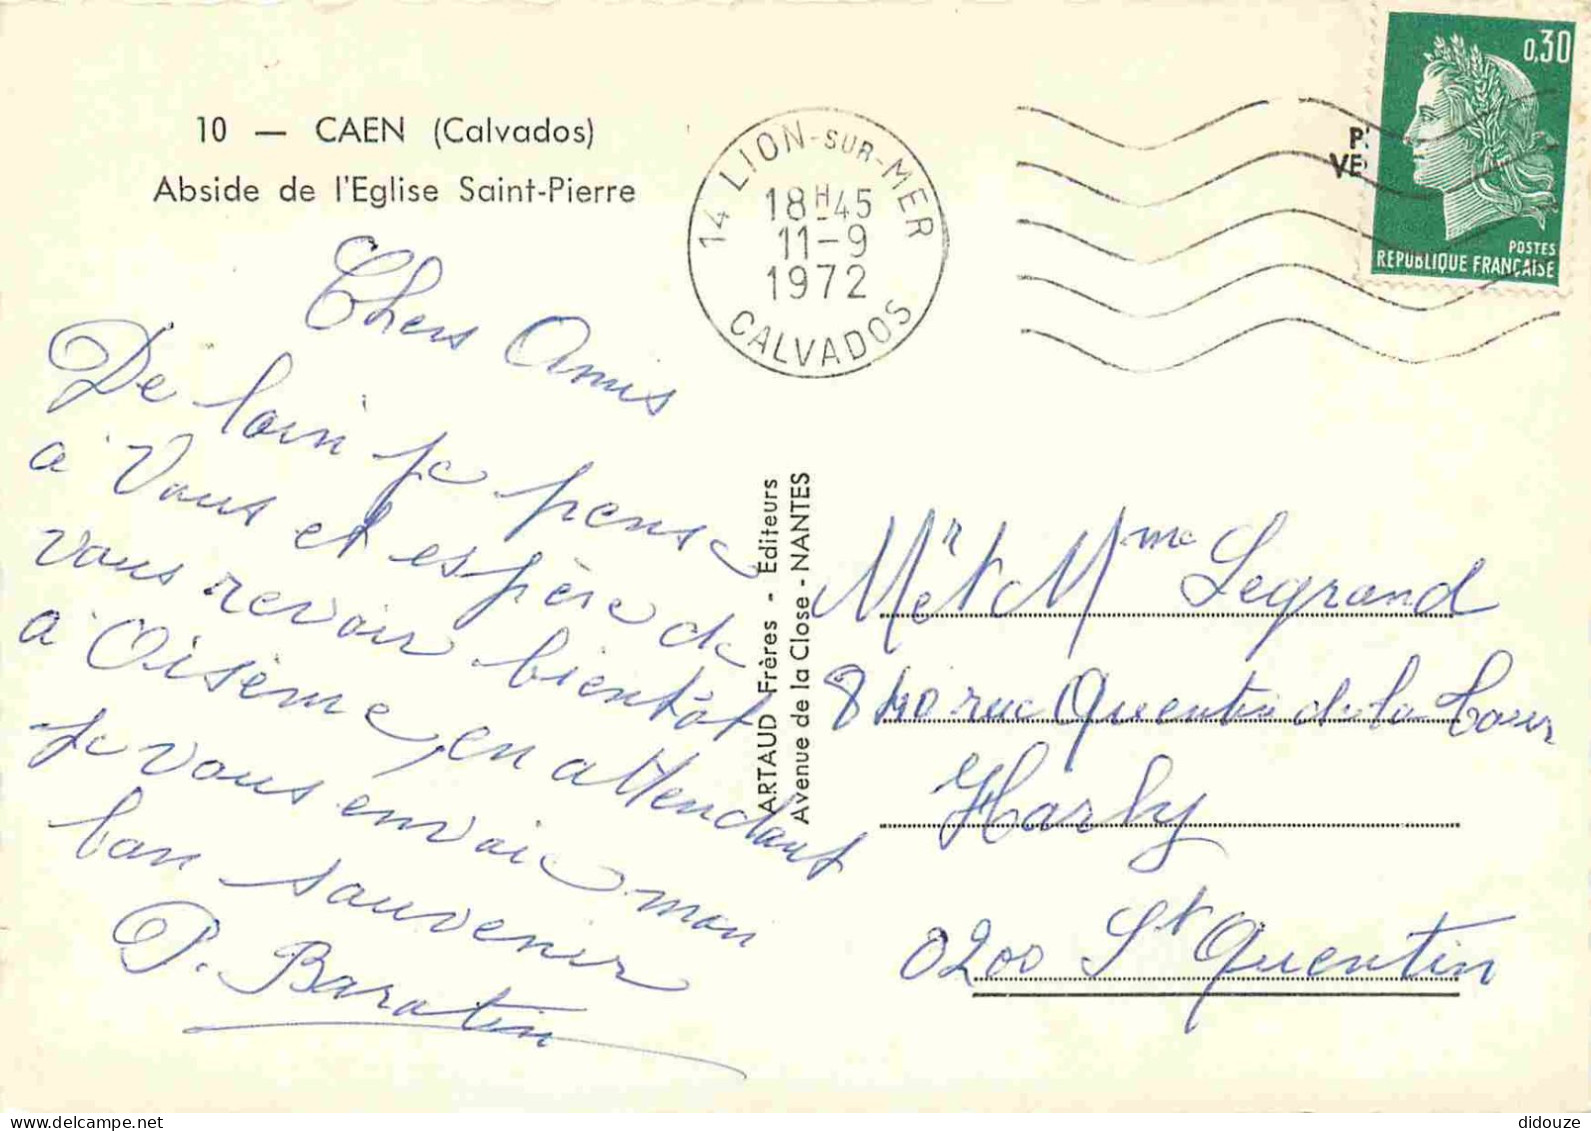 10 — CAEN (Calvados)
Abside de l'Eglise Saint-Pierre
14 LION-SUR-MER
18H45
11-9
1972
CALVADOS
0,30
POSTES
REPUBLIQUE FRANÇAISE
Chers Amis
De loin je pense
à Vous et espère de
vous revoir bientôt
à Oisème, en attendant
je vous envoie mon
bon souvenir
P. Baratin
ARTAUD Frères - Editeurs
Avenue de la Close - NANTES
Mr et Mme Legrand
rue Quentin de la Tour
Harly
0200 St Quentin
delcampe.net
didouze